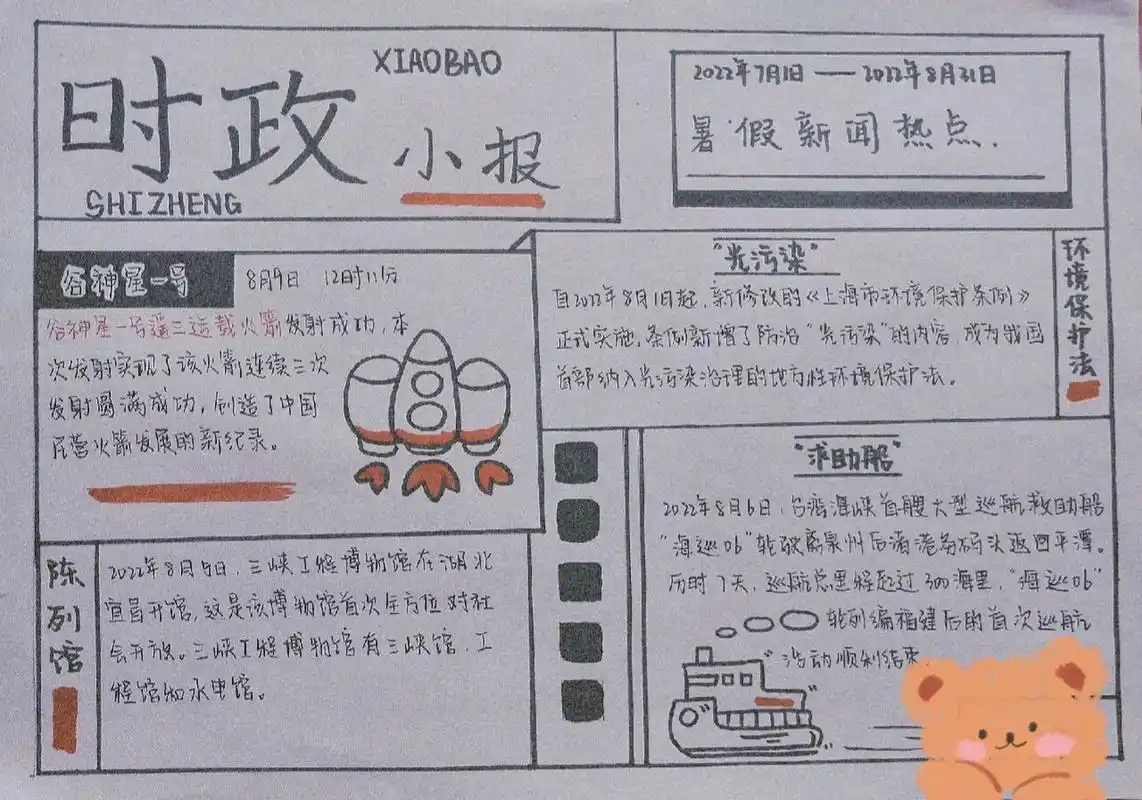 XIAOBAO
时政
小报
SHIZHENG
2022年7月1日——2022年8月31日
暑假新闻热点.
谷神星一号
8月9日 12时11分
谷神星一号遥三运载火箭发射成功,本
次发射实现了该火箭连续三次
发射圆满成功,创造了中国
民营火箭发展的新纪录。
"光污染"
自2022年8月1日起,新修改的《上海市环境保护条例》
正式实施,条例新增了防治"光污染"的内容,成为我国
首部纳入光污染治理的地方性环境保护法。
环境保护法
陈列馆
2022年8月5日,三峡工程博物馆在湖北
宜昌开馆,这是该博物馆首次全方位对社
会开放。三峡工程博物馆有三峡馆,工
程馆和水电馆。
"求助船"
2022年8月6日,台湾海峡首艘大型巡航救助船
"海巡06"轮驶离泉州后渚港务码头返回平潭。
历时7天,巡航总里程超过300海里,"海巡06"
轮列编福建后的首次巡航
活动顺利结束